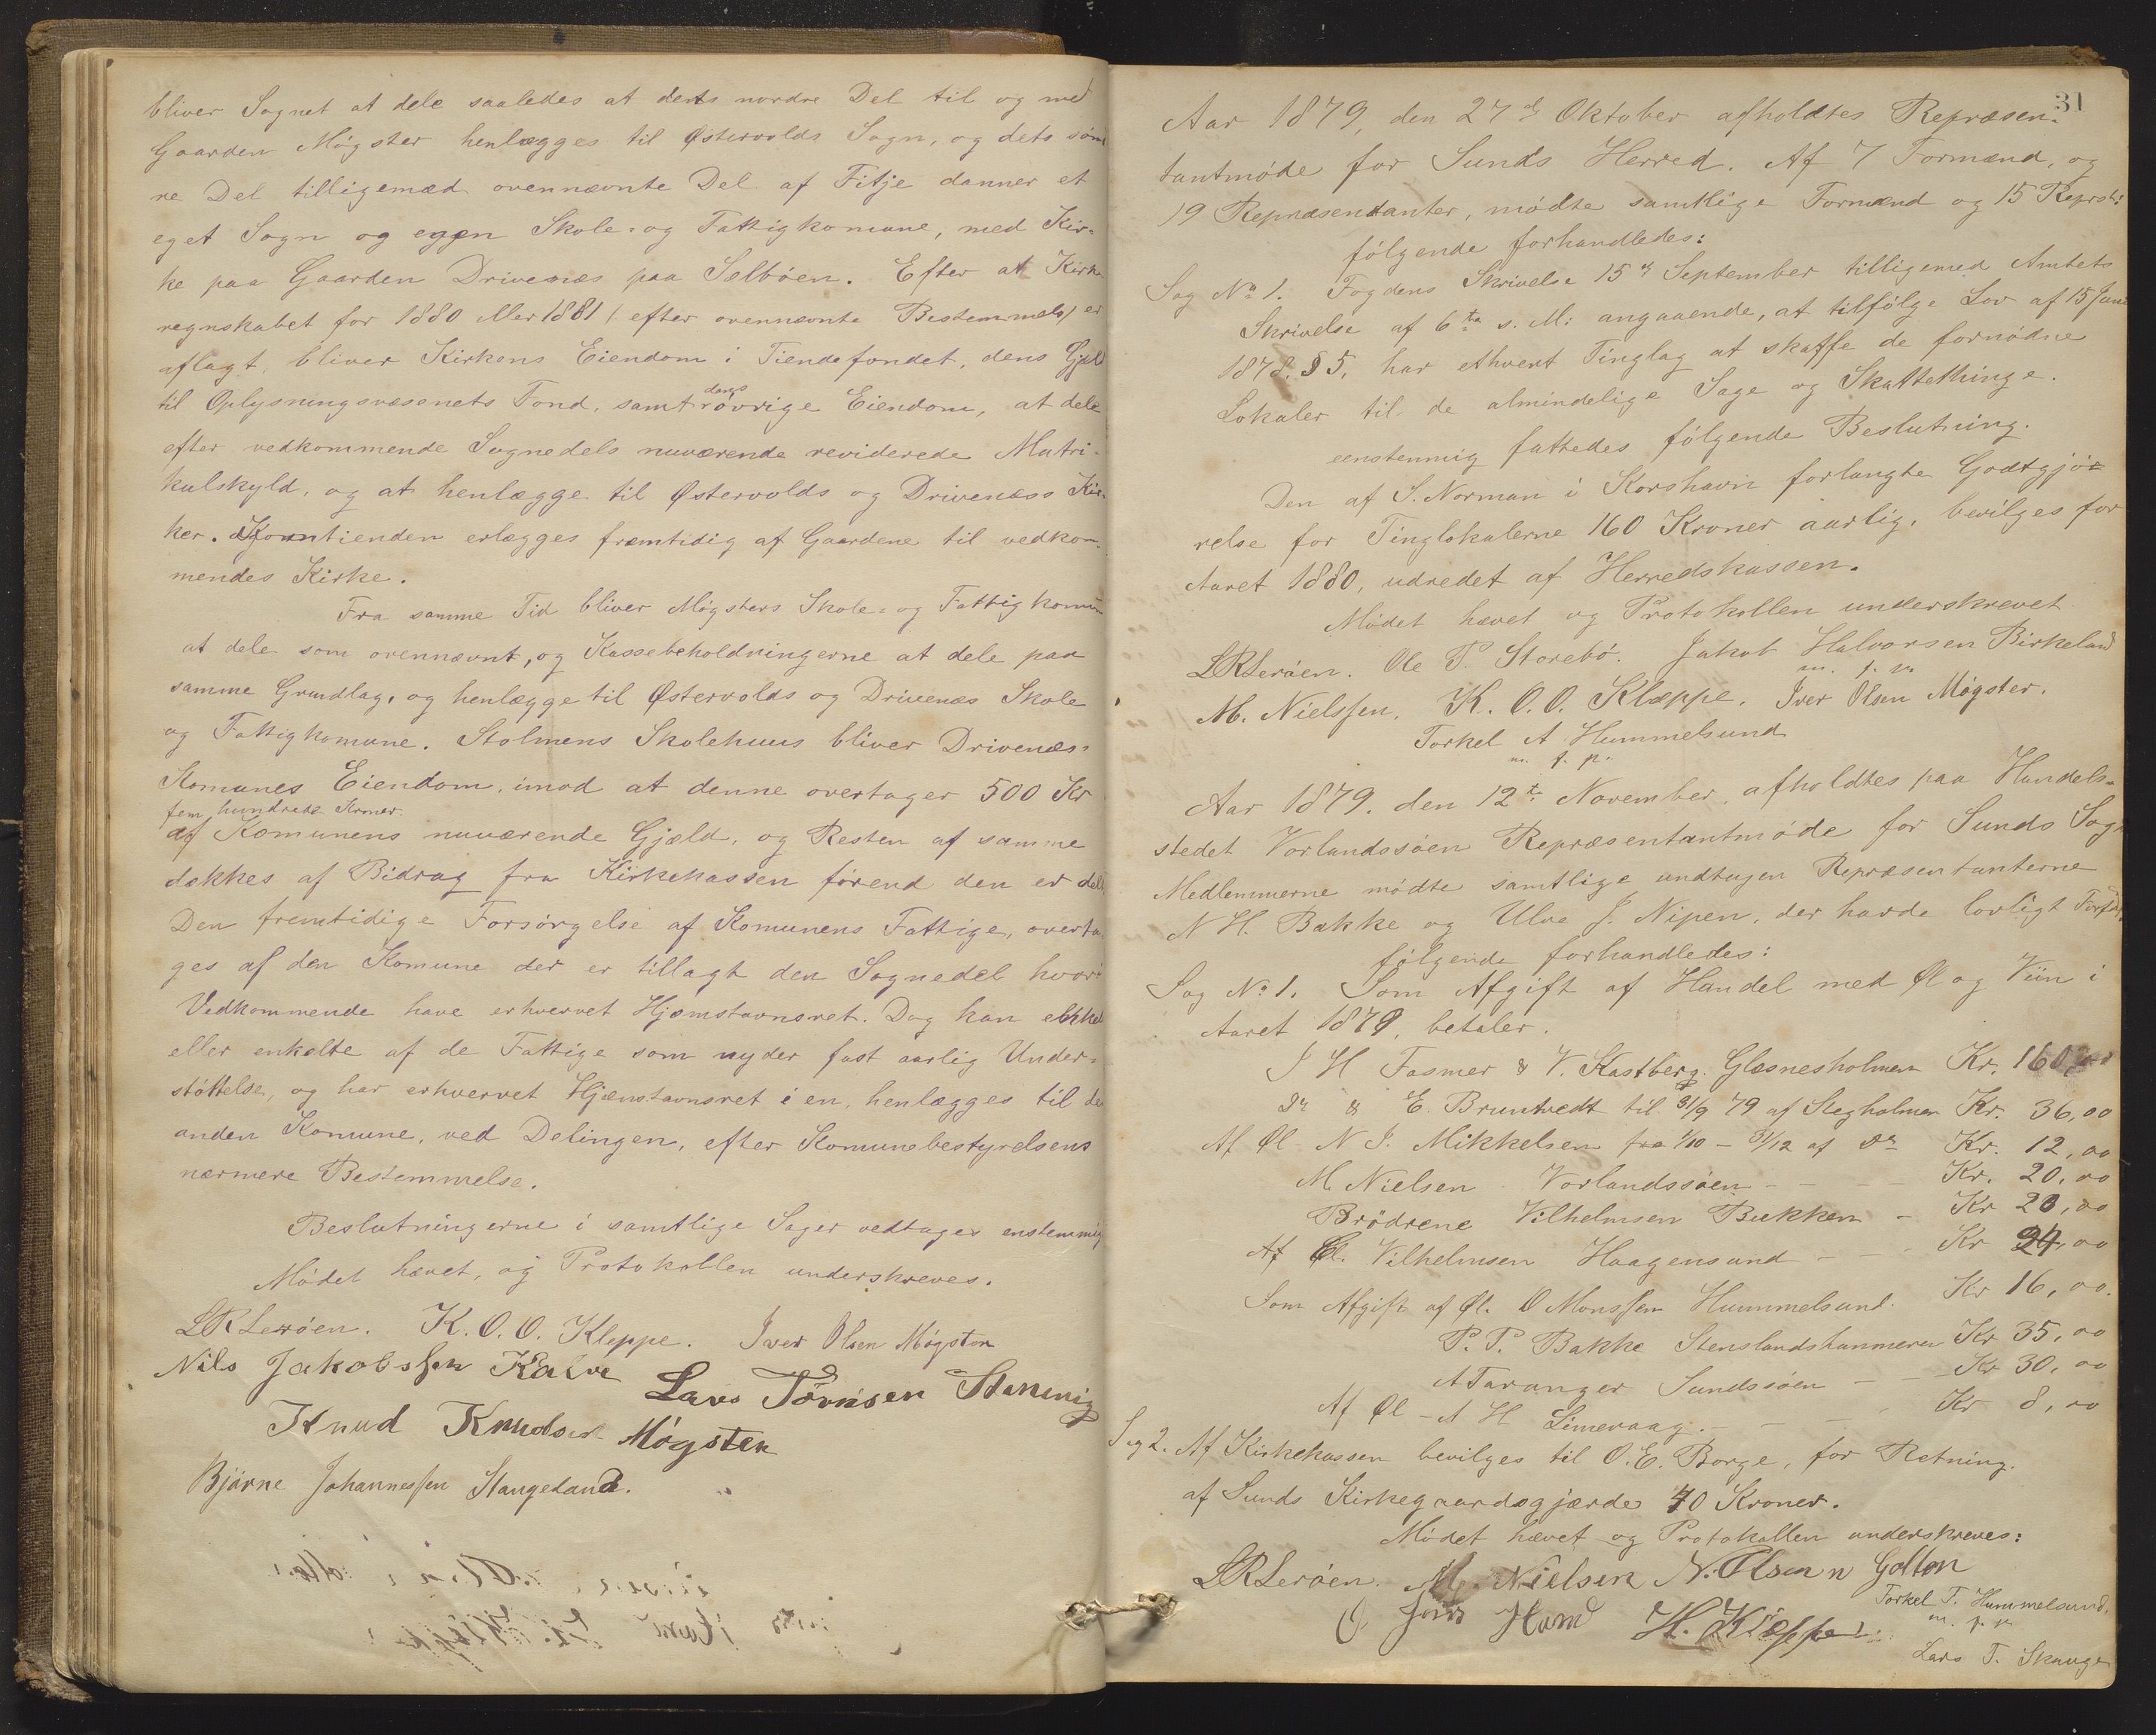 bliver Sognet at dele saaledes at dets nordre Del til og med
Gaarden Møgster henlægges til Østervolds Sogn, og dets sønd
re Del tilligemed ovennævnte Del af Fitje danner et
eget Sogn og egen Skole- og Fattigkomune, med Kir-
ke paa Gaarden Drivenæs paa Selbøen. Efter at Kirke
regnskabet for 1880 eller 1881 (efter ovennævnte Bestemmels) er
aflagt, bliver Kirkens Eiendom i Tiendefondet, dens Gjæld
til Oplysningsvæsenets Fond, samt dens øvrige Eiendom, at dele
efter vedkommende Sognedels nuværende reviderede Matri-
kulskyld, og at henlægge til Østervolds og Drivenæss Kir-
ker. Korntienden erlægges fremtidig af Gaardene til vedkom-
mendes Kirke.
Fra samme Tid bliver Møgsters Skole- og Fattigkomun
at dele som ovennævnt, og Kassebeholdningerne at dele paa
samme Grundlag, og henlægge til Østervolds og Drivenæs Skole
og Fattigkomune. Stolmens Skolehuus bliver Drivenæs-
Komunes Eiendom, imod at denne overtager 500 Kr
fem hundrede Kroner
af Komunens nuværende Gjæld, og Resten af samme
dækkes af Bidrag fra Kirkekassen førend den er delt
Den fremtidige Forsørgelse af Komunens Fattige, overta
ges af den Komune der er tillagt den Sognedel hvori
Vedkommende have erhvervet Hjemstavnsret. Dog kan enkel
eller enkelte af de Fattige som nyder fast aarlig Under-
støttelse, og har erhvervet Hjemstavnsret i en, henlægges til den
anden Komune, ved Delingen, efter Komunebestyrelsens
nærmere Bestemmelse.
Beslutningerne i samtlige Sager vedtages enstemmig
Mødet hævet, og Protokollen underskreves.
LRLerøen. K. O. O. Kleppe. Iver Olsen Møgster
Nils Jakobssen Kalve Lars
Knud Knudsen Møgster
Bjarne Johannessen Stangeland.
31
Aar 1879, den 27de Oktober afholdtes Repræsen-
tantmøde for Sunds Herred. Af 7 Formænd, og
19 Repræsentanter, mødte samtlige Formænd og 15 Reprst:
følgende forhandledes:
Sag No 1. Fogdens Skrivelse 15de September tilligemed Amtets
Skrivelse af 6te s. M: angaaende, at tilfølge Lov af 15 Juni
1878, § 5, har ethvert Tinglag at skaffe de fornødne
Lokaler til de almindelige Sage og Skattethinge.
eenstemmig fattedes følgende Beslutning.
Den af S. Norman i Korshavn forlangte Godtgjø-
relse for Tinglokalerne 160 Kroner aarlig, bevilges for
Aaret 1880, udredet af Herredskassen.
Mødet hævet og Protokollen underskrevet
LRLerøen. Ole P. Storebø. Jakob Halvorsen Birkeland
m. f. p.
M. Nielssen. K. O. O. Klæppe. Iver Olsen Møgster.
Torkel A Hummelsund
m. f. p.
Aar 1879, den 12te November, afholdtes paa Handels-
stedet Vorlandssøen Repræsentantmøde for Sunds Sogn
Medlemmerne mødte samtlige undtagen Repræsentanterne
N H. Bakke og Ulve J. Nipen, der havde lovligt Forfald,
følgende forhandledes:
Sag No 1. Som Afgift af Handel med Øl og Viin i
Aaret 1879, betaler.
J H Fasmer & V. Kastberg. Glesnesholmen Kr. 160,00
Do & E. Bruntvedt til 31/9 79 af Stegholmen Kr. 36,00
Af Øl - N J. Mikkelsen fra 1/10 - 31/12 af Do Kr. 12,00
M. Nielsen Vorlandssøen - - - Kr. 20,00
Brødrene Vilhelmsen Bækken - Kr 20,00
Af Øl. Vilhelmsen Haagensund - - Kr 24,00
Som Afgift af Øl. O Monssen Hummelsund. Kr 16,00.
P. P. Bakke Stenslandshammeren Kr 35,00
A Taranger Sundssøen - - Kr 30,00
Af Øl - A H Limevaag. - - Kr 8,00
Sag 2. Af Kirkekassen bevilges til O. E. Borge, for Retning.
af Sunds Kirkegaardsgjærde 40 Kroner.
Mødet hævet og Protokollen underskreves:
LRLerøen. M. Nielsen N. Olsen Golten
Torkel T. Hummelsund,
m. f. p.
H. Kleppe.
Lars T. Skauge